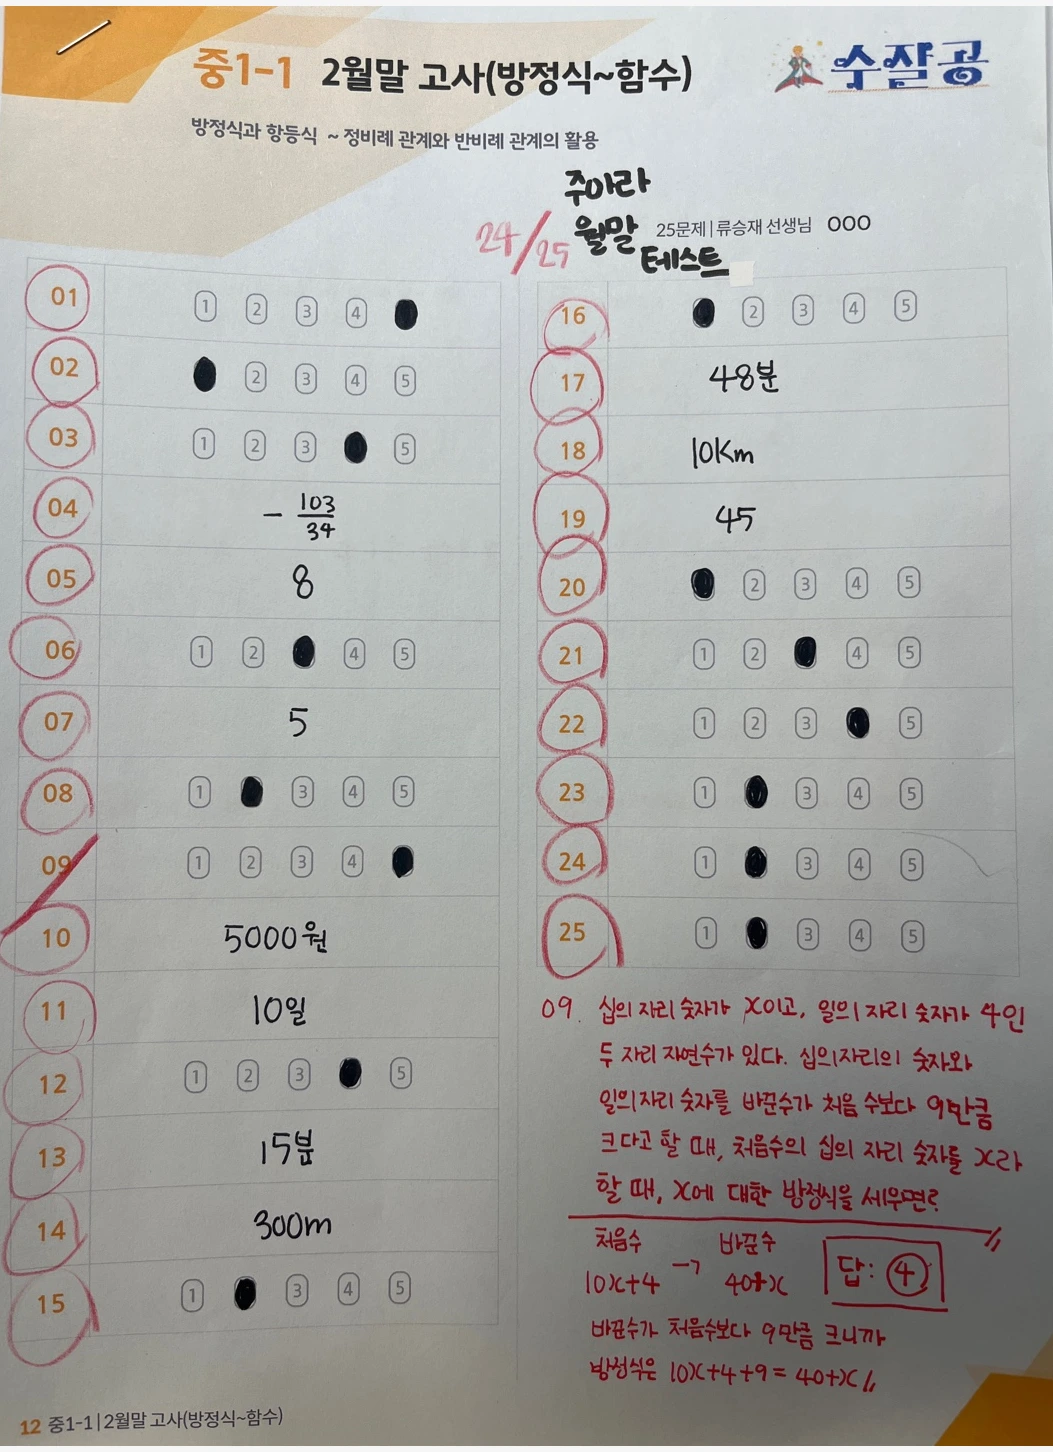 중1-1 2월말 고사(방정식~함수)
수잘공
방정식과 항등식 ~ 정비례 관계와 반비례 관계의 활용
주아라
월말
테스트
24/25
25문제 | 류승재 선생님 OOO
01 1 2 3 4
02 2 3 4 5
03 1 2 3 5
04 - 103/34
05 8
06 1 2 4 5
07 5
08 1 3 4 5
09 1 2 3 4
10 5000원
11 10일
12 1 2 3 5
13 15분
14 300m
15 1 3 4 5
16 2 3 4 5
17 48분
18 10Km
19 45
20 2 3 4 5
21 1 2 4 5
22 1 2 3 5
23 1 3 4 5
24 1 3 4 5
25 1 3 4 5
09. 십의 자리 숫자가 x이고, 일의 자리 숫자가 4인
두 자리 자연수가 있다. 십의자리의 숫자와
일의자리 숫자를 바꾼수가 처음 수보다 9만큼
크다고 할 때, 처음수의 십의 자리 숫자를 x라
할 때, x에 대한 방정식을 세우면?
처음수 → 바꾼수
10x+4 40+x
답: ④
바꾼수가 처음수보다 9만큼 크니까
방정식은 10x+4+9=40+x
12 중1-1 | 2월말 고사(방정식~함수)